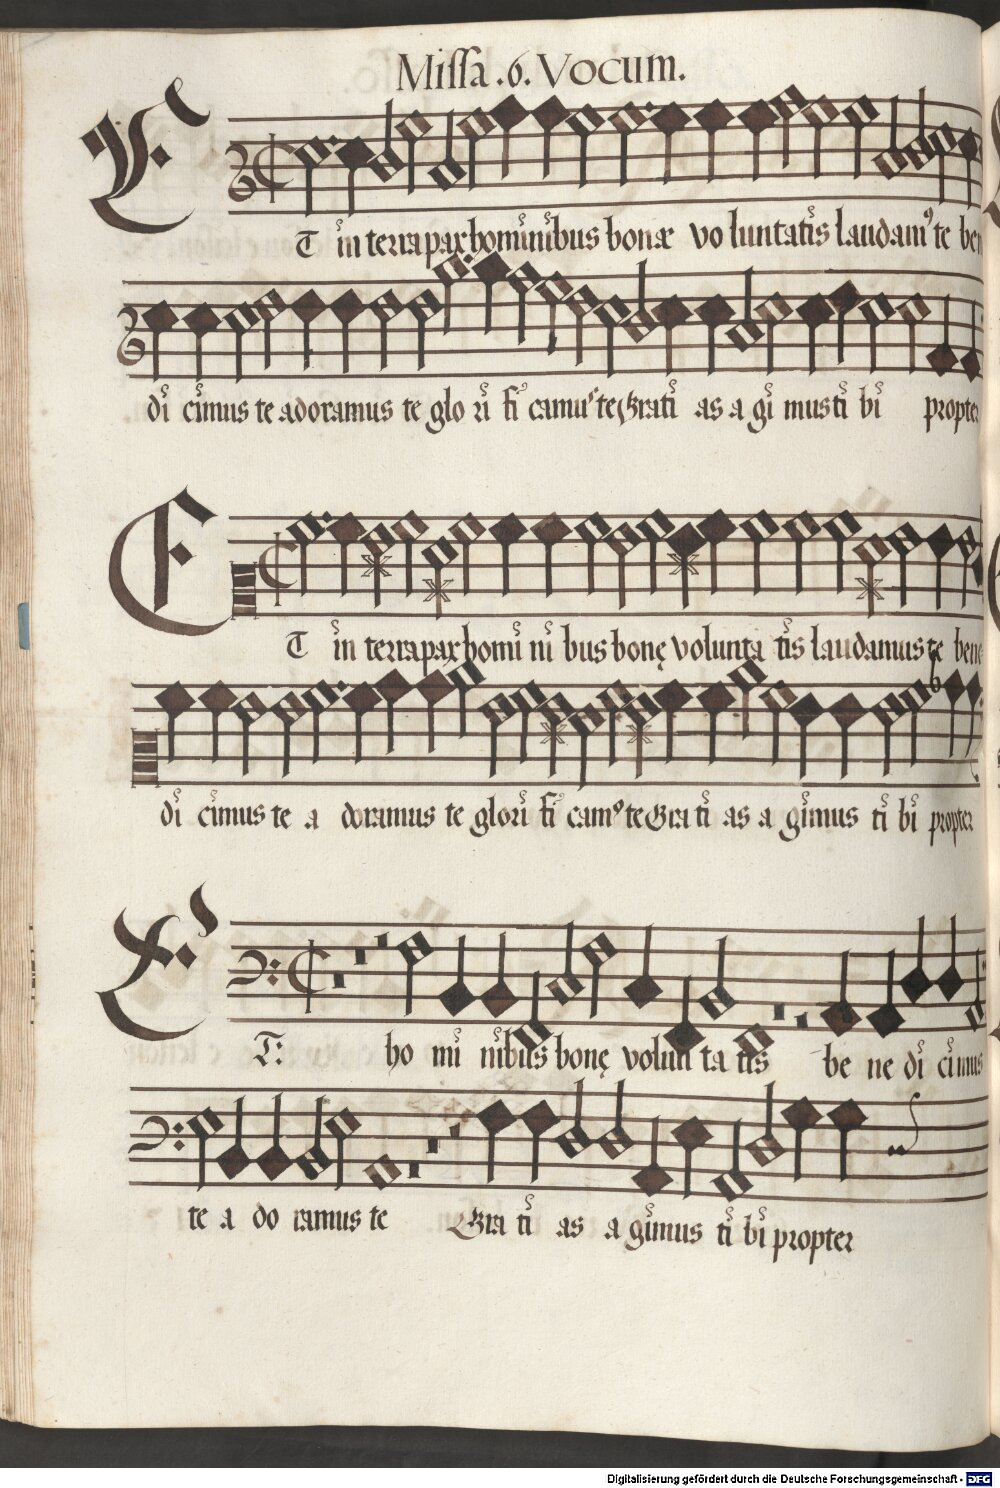 Missa .6. Vocum.
ET in terra pax hominibus bonæ vo luntatis laudamꝰ te ben
di cimus te adoramus te glo ri fi camꝰ te Grati as a gi mus ti bi propter
ET in terra pax homi ni bus bonę volunta tis laudamus te bene
di cimus te a doramus te glori fi camꝰ te Gra ti as a gimus ti bi propter
ET: ho mi nibus bonę volun ta tis be ne di cimus
te a do ramus te Gra ti as a gimus ti bi propter
Digitalisierung gefördert durch die Deutsche Forschungsgemeinschaft - DFG